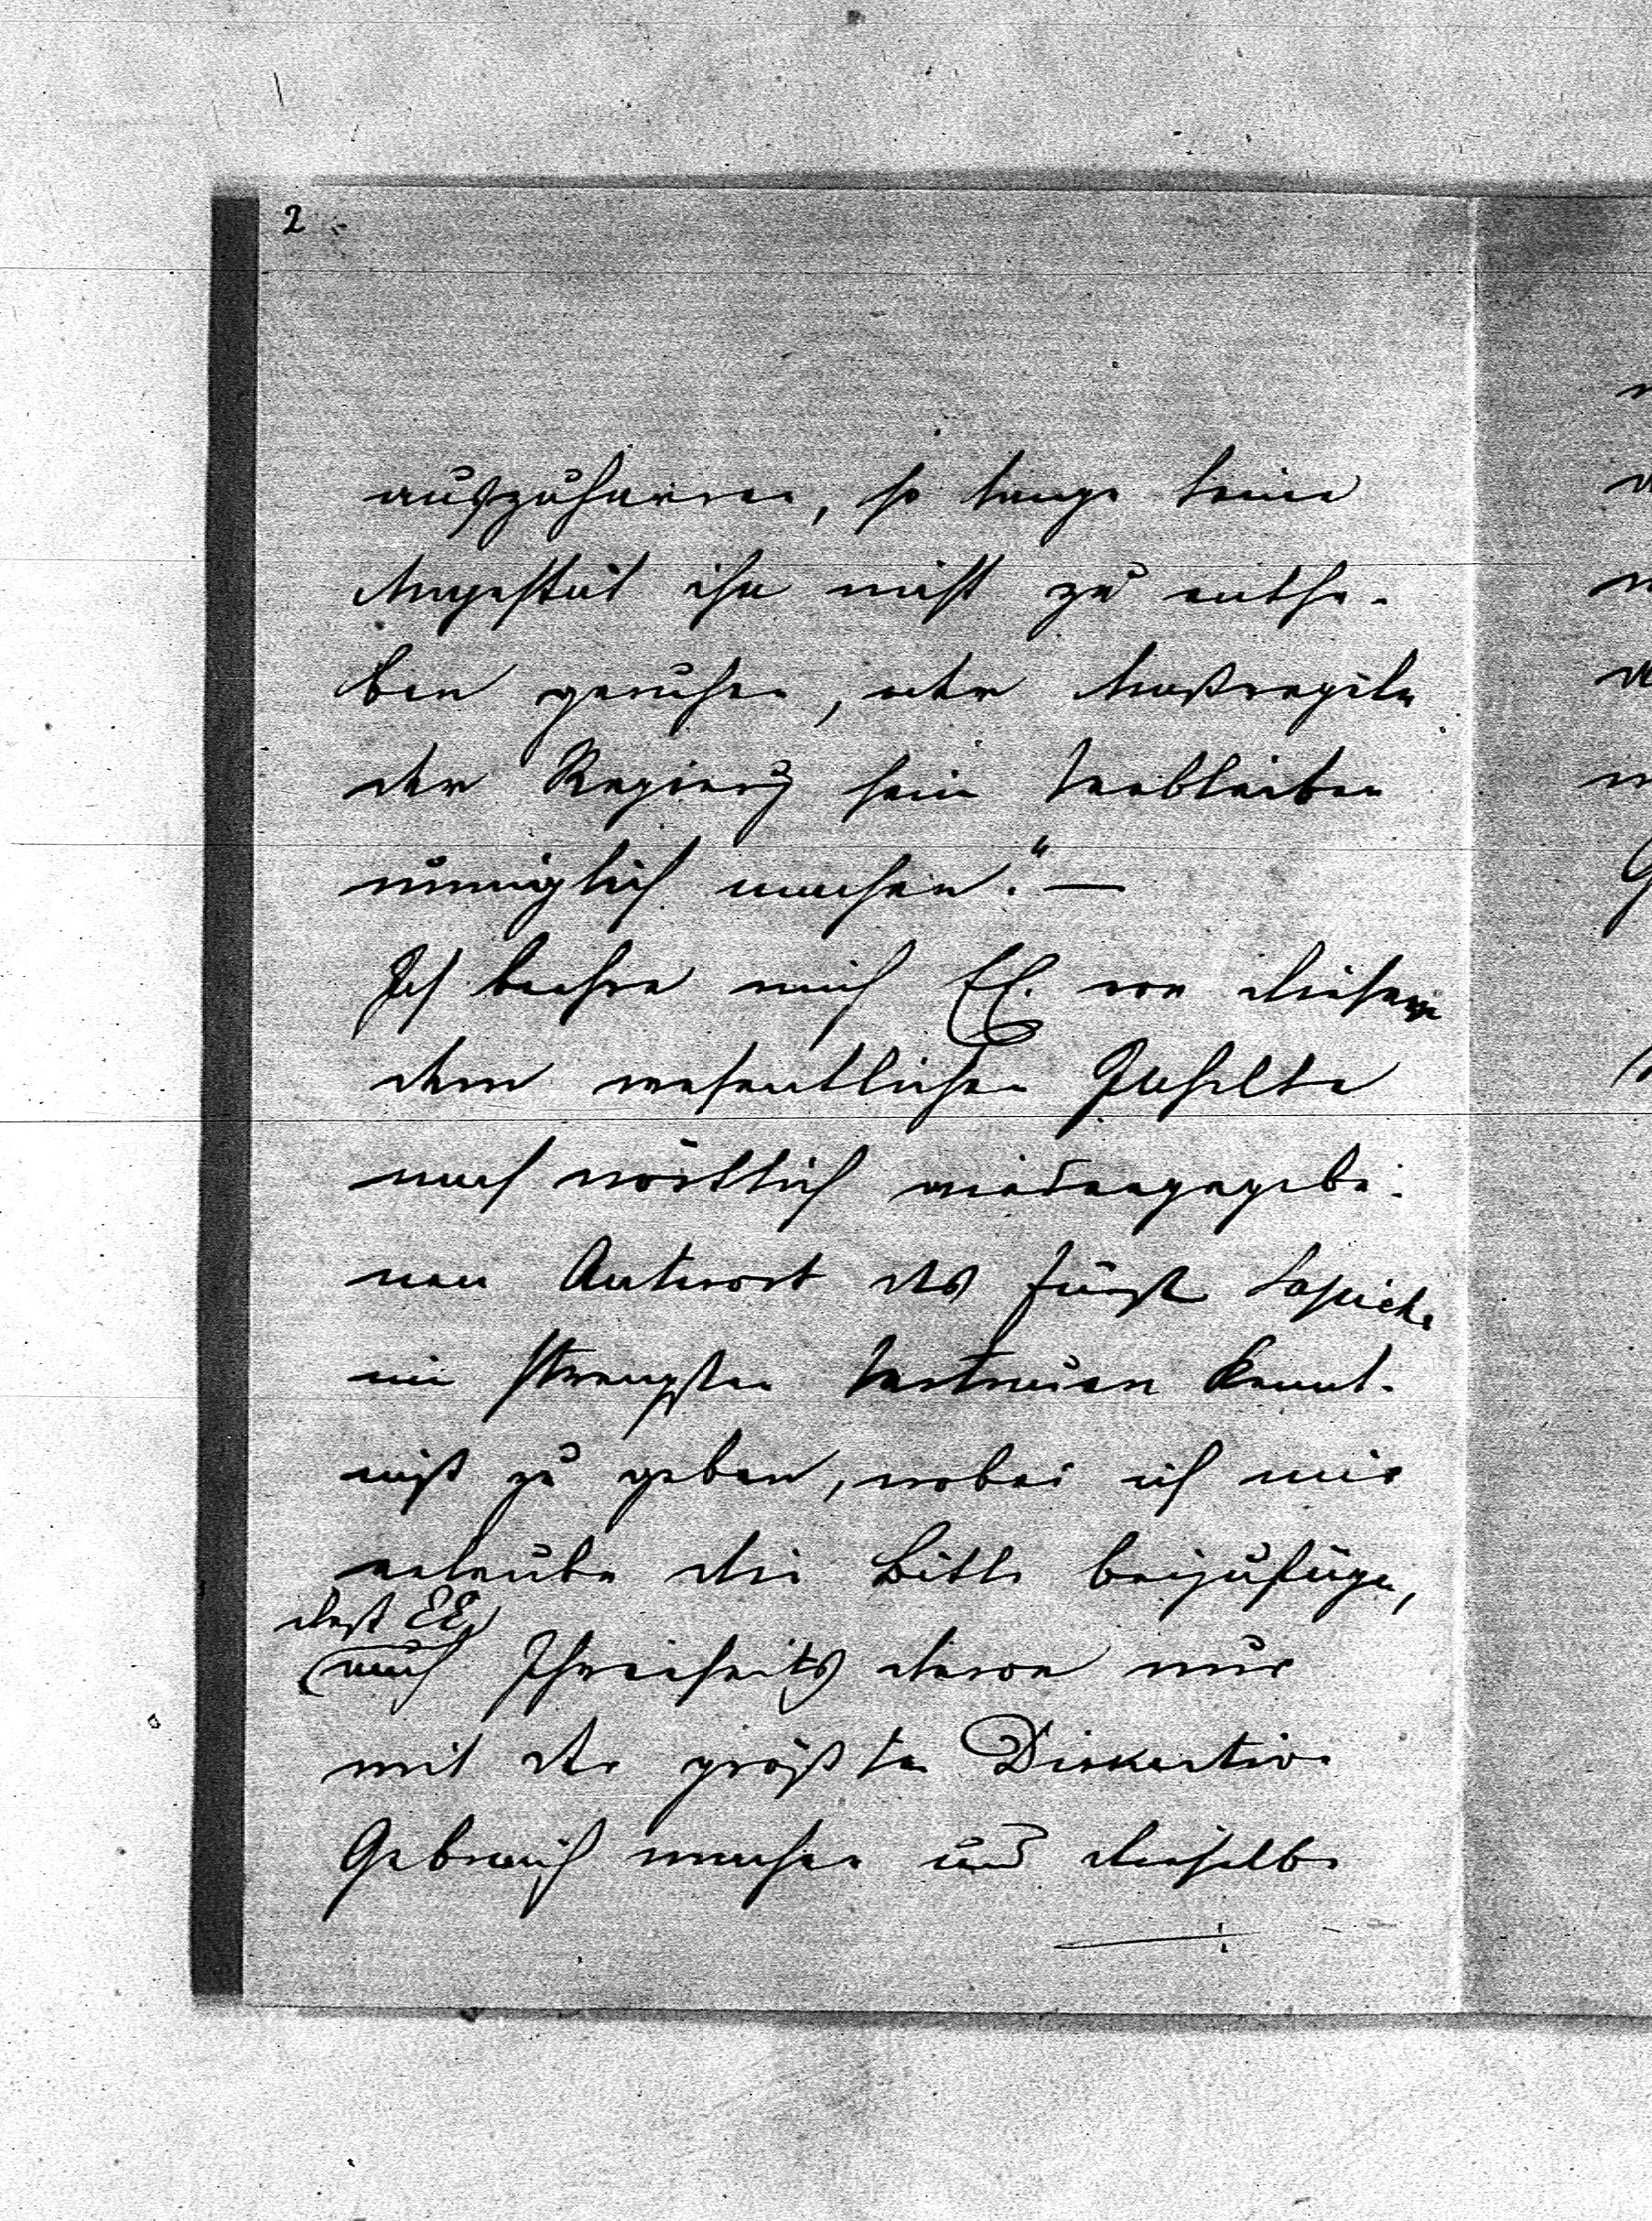 2
auszuharren, so lange Seine
Majestät ihn nicht zu enthe-
ben geruhen, oder Maßregeln
der Regierung sein Verbleiben
unmöglich machen." —
Ich beehre mich EE. von dieser
dem wesentlichen Inhalte
nach wörtlich wiedergegebe-
nen Antwort des Fürsten Sapieha
im strengsten Vertrauen Kennt-
niß zu geben, wobei ich mir
erlaube die Bitte beizufügen,
daß EE.
auch Ihrerseits davon nur
mit der größten Diskretion
Gebrauch machen und dieselbe